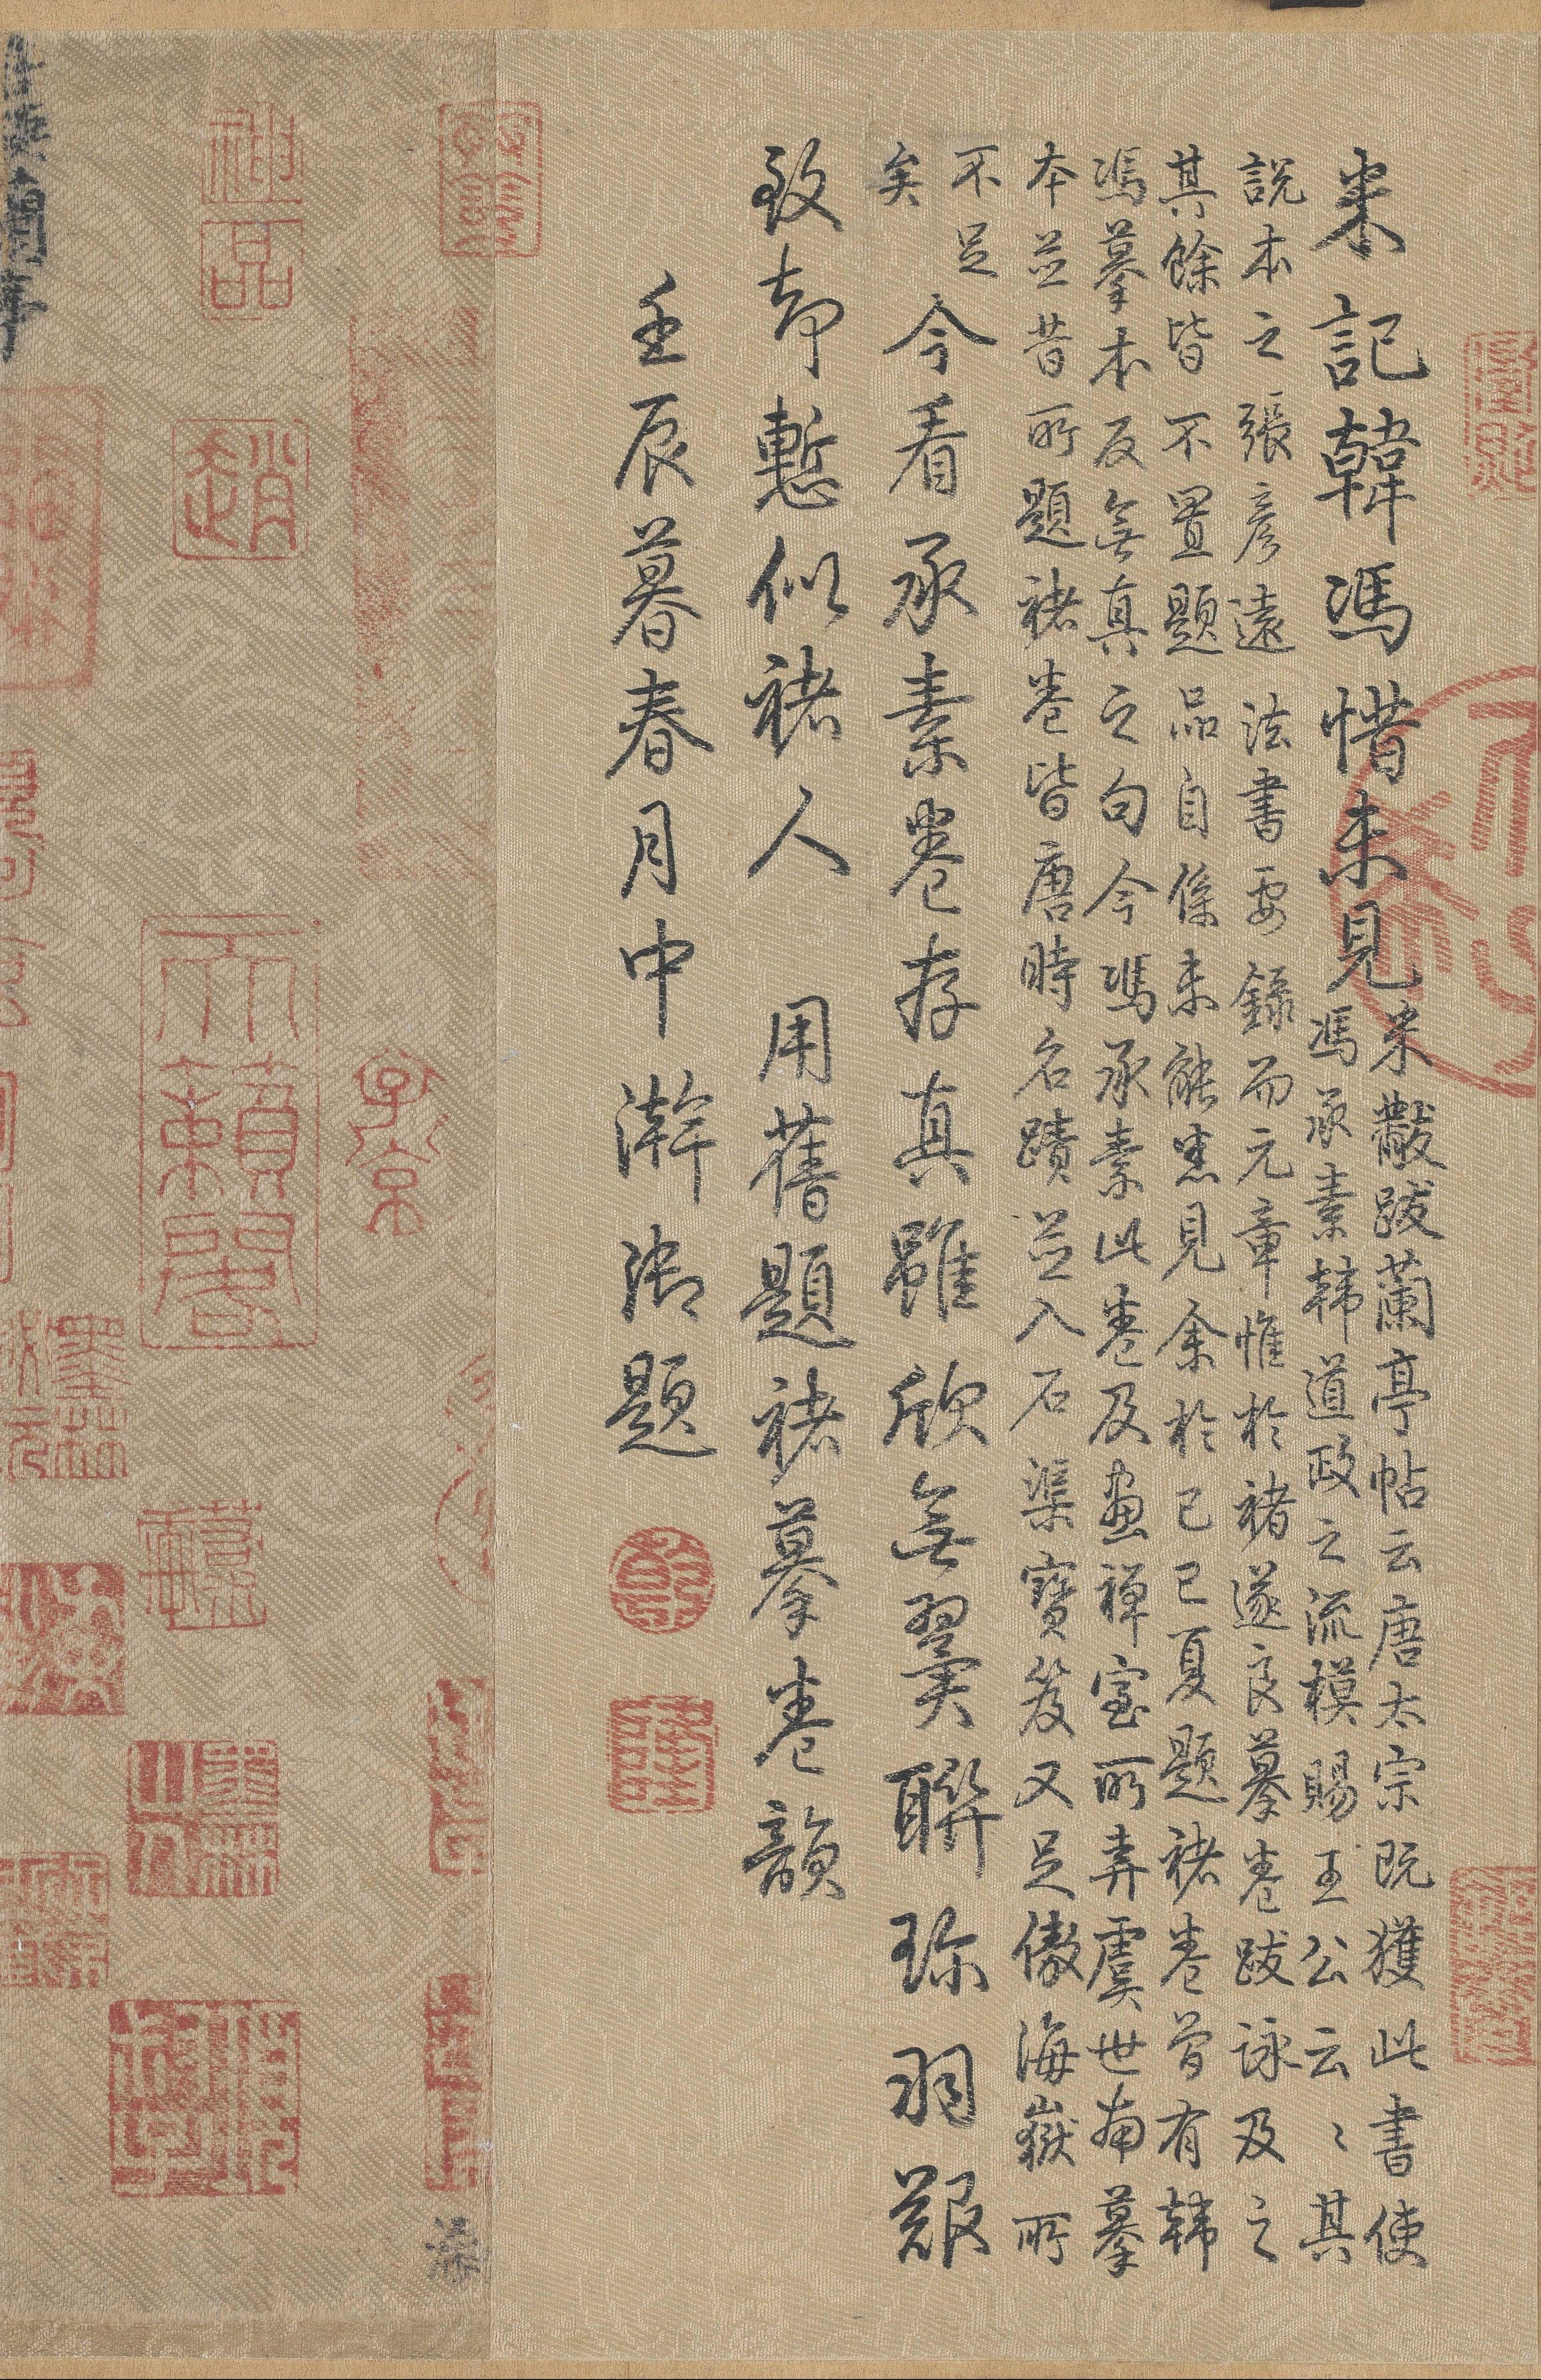 米記韓馮惜未見米黻跋蘭亭帖云唐太宗既獲此書使
馮承素韓道政之流模賜王公云〻其
說本之張彥遠法書要錄而元章惟於褚遂良摹卷跋詠及之
其餘皆不置題品自係未能悉見余於己巳夏題褚卷曾有韓
馮摹本反無真之句今馮承素此卷及畫禪室所弆虞世南摹
本並昔所題褚卷皆唐時名蹟並入石渠寶笈又足傲海嶽所
不足
矣今看承素卷存真雖欣無翼聯珎羽艱
致却慙似褚人 用舊題褚摹卷韻
壬辰暮春月中澣御題
子京
神品
趙
天籟閣